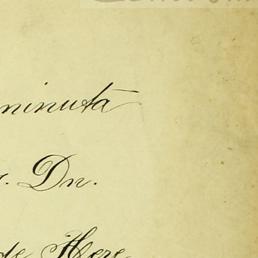 minuta
Dn.
de Here-